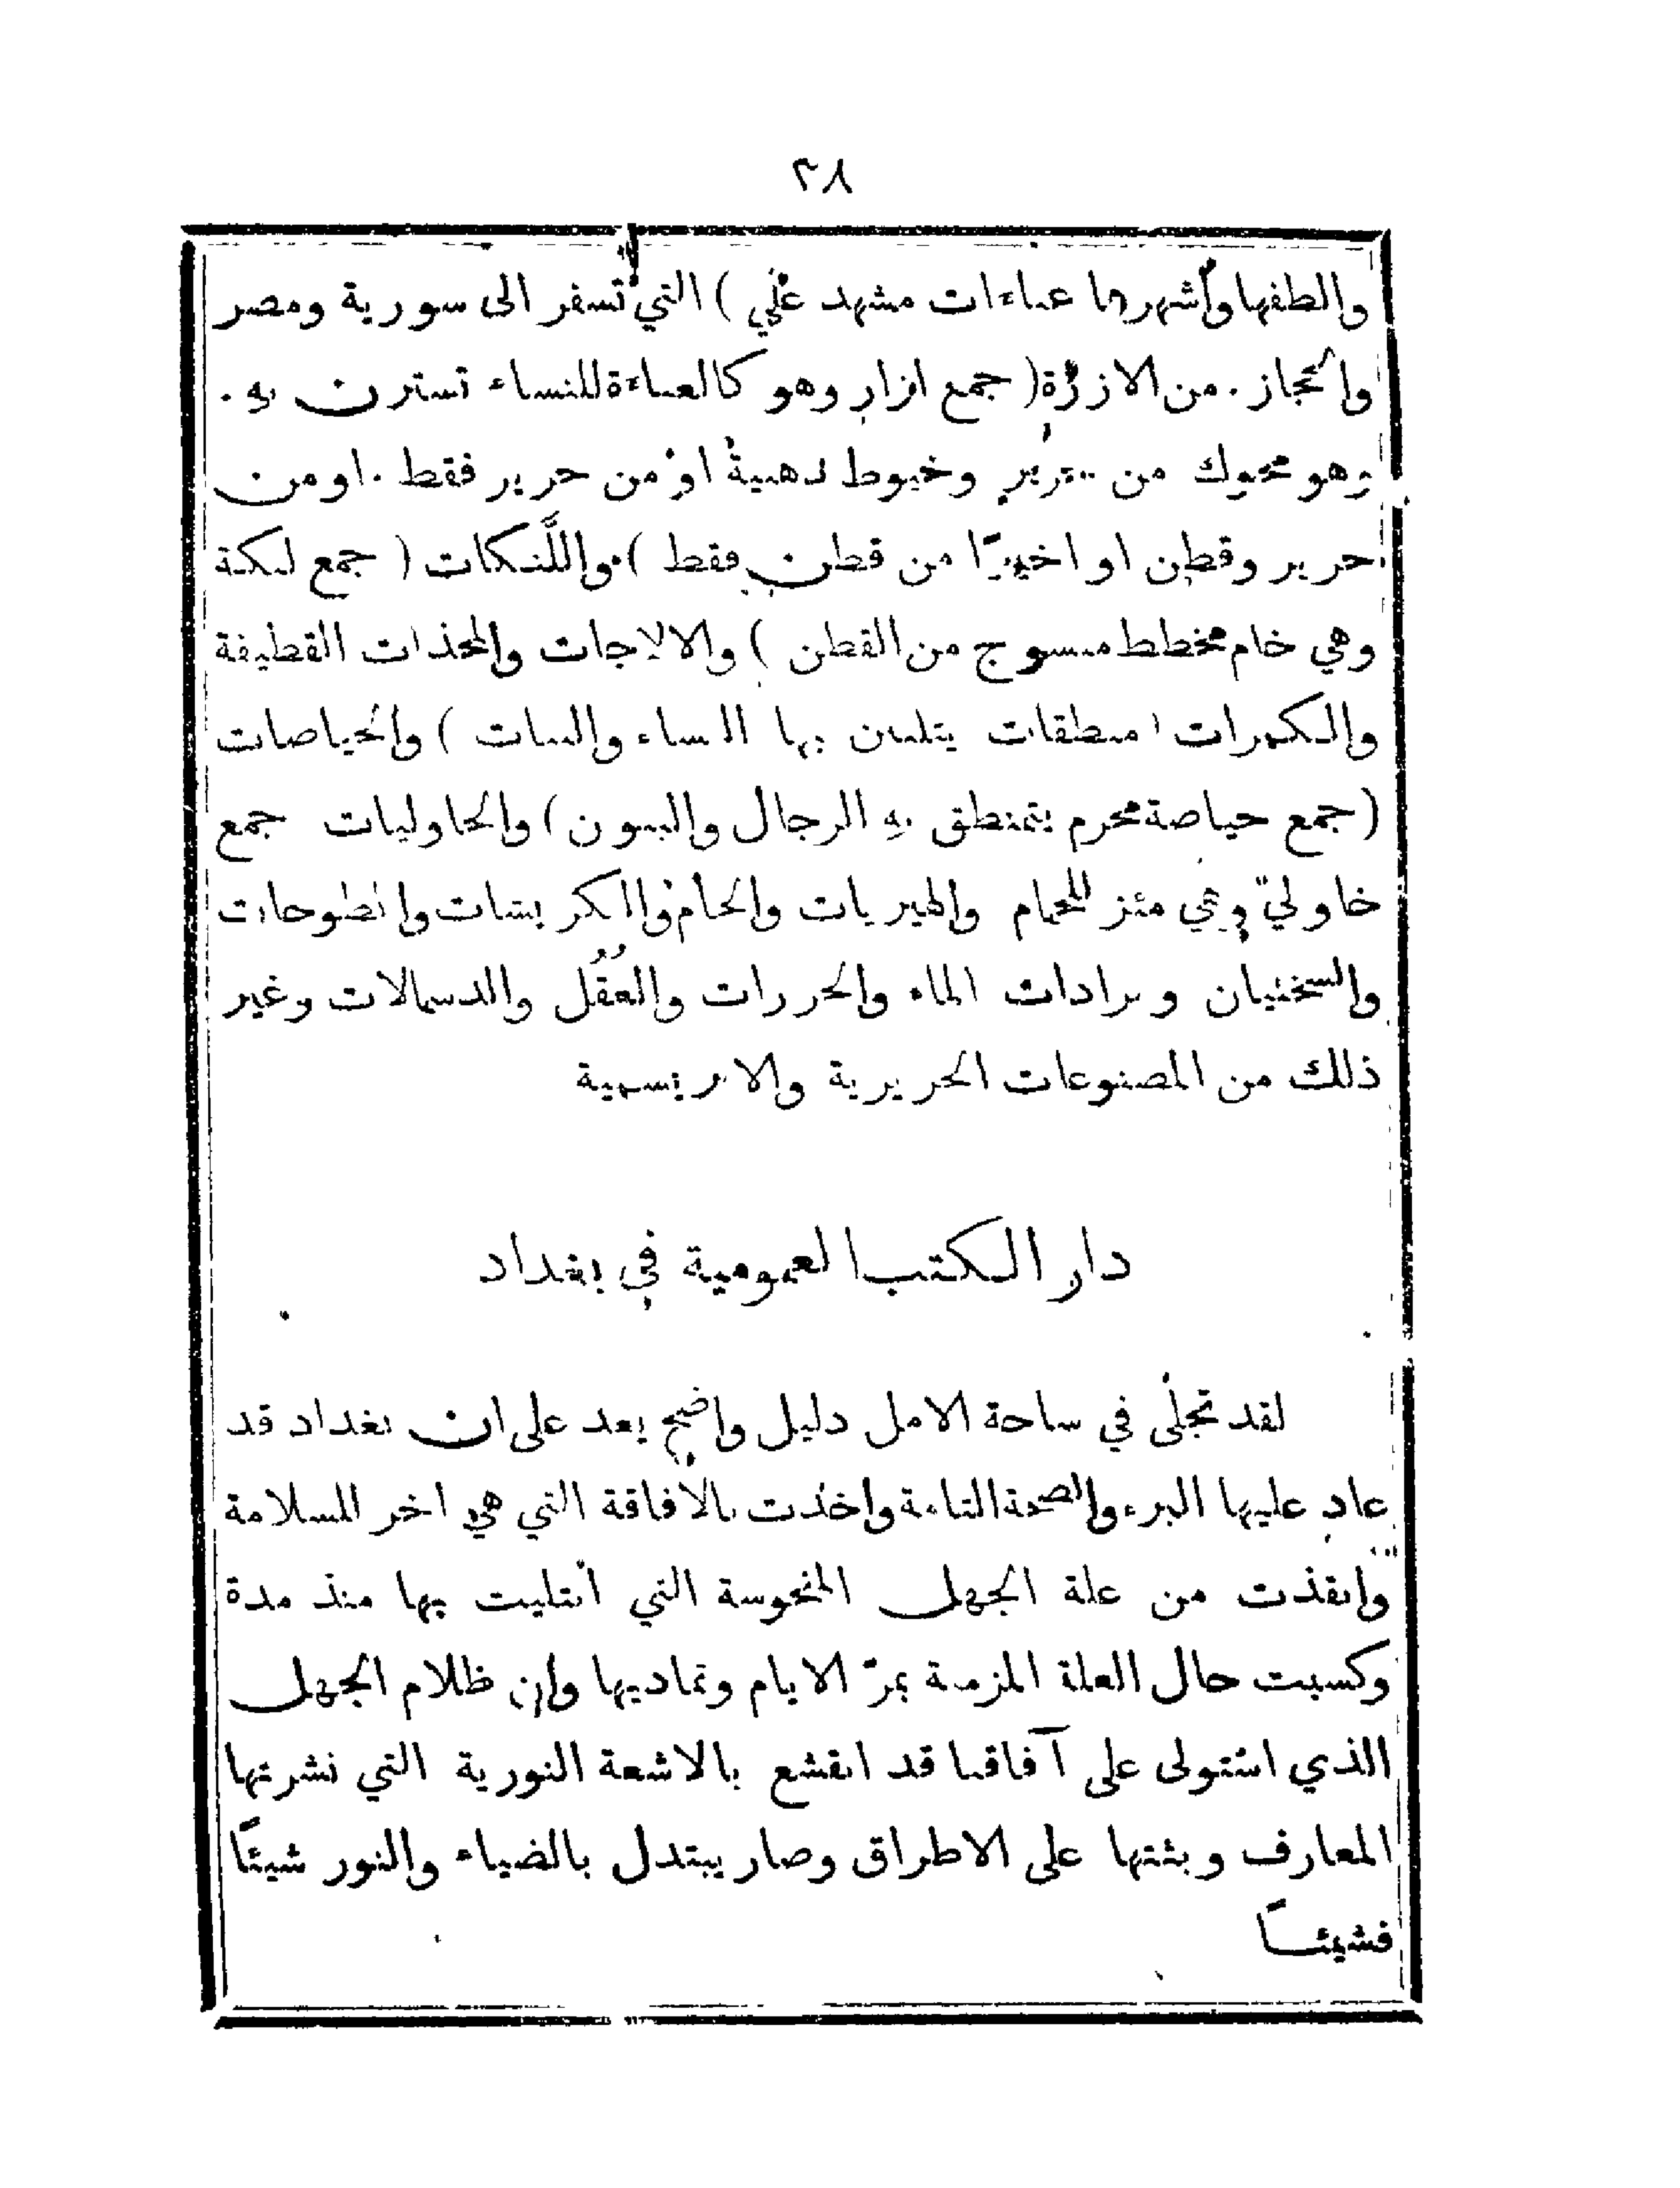 ٣٨
والطفها واشهرها عباءات مشهد علي ) التي تسفر الى سورية ومصر
والحجاز . من الازرة ( جمع ازار وهو كالعباءة للنساء تسترن به .
وهو محوك من حرير وخيوط ذهبية او من حرير فقط . او من
حرير وقطن او اخيرًا من قطن فقط ) واللَّنكات ( جمع لنكة
وهي خام مخطط منسوج من القطن ) والالاجات والمخذات القطيفة
والكمرات ( منطقات يتلبسن بها النساء والبنات ) والحياصات
( جمع حياصة محرم يتمنطق به الرجال والبنون ) والخاوليات جمع
خاوليّ وهي مئزر للحمام والهيريات والخام والكريشات والطوحات
والسختيان وبرادات الماء والحررات والعُقُل والدسمالات وغير
ذلك من المصنوعات الحريرية والابريسمية
دار الكتب العمومية في بغداد
لقد تجلى في ساحة الامل دليل واضح يعد على ان بغداد قد
عاد عليها البرء والصحة التامة واخذت بالافاقة التي هي اخر السلامة
وانقذت من علة الجهل المنحوسة التي ابتليت بها منذ مدة
وكسبت حال العلة المزمنة بمرّ الايام وتماديها وان ظلام الجهل
الذي استولى على آفاقنا قد انقشع بالاشعة النورية التي نشرتها
المعارف وبثتها على الاطراق وصار يبتدل بالضياء والنور شيئًا
فشيئًا